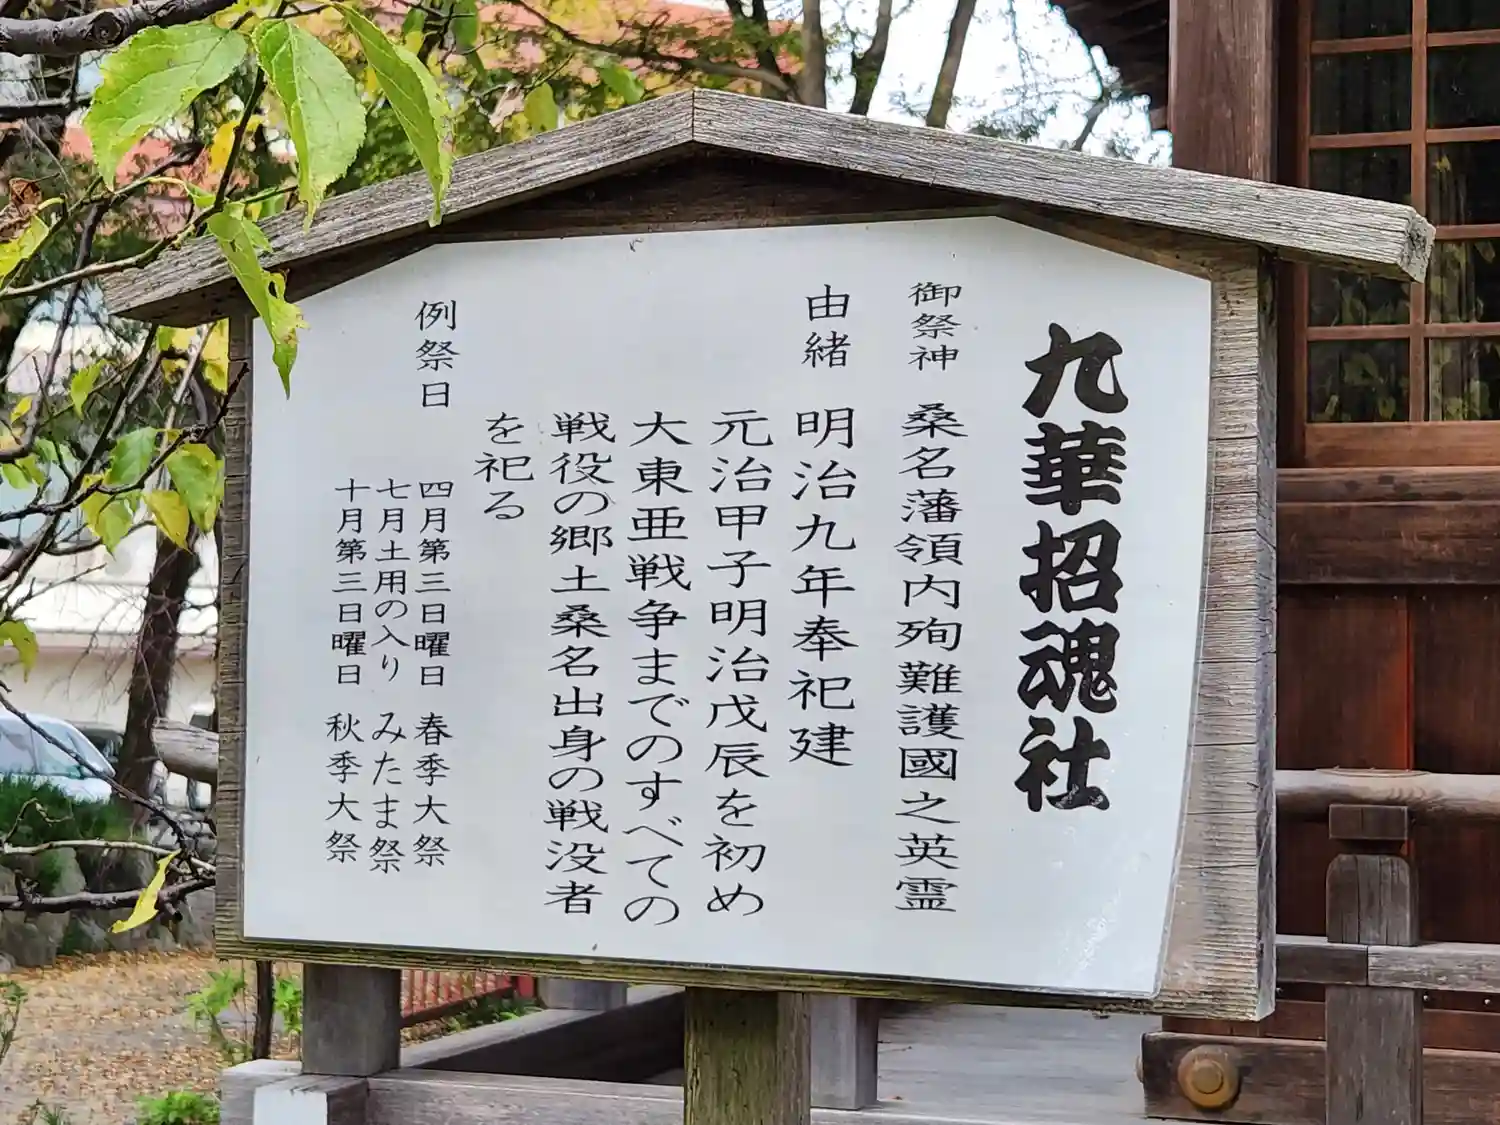 九華招魂社
御祭神 桑名藩領内殉難護國之英霊
由緒 明治九年奉祀建
元治甲子明治戊辰を初め
大東亜戦争までのすべての
戦役の郷土桑名出身の戦没者
を祀る
例祭日 四月第三日曜日 春季大祭
七月土用の入り みたま祭
十月第三日曜日 秋季大祭